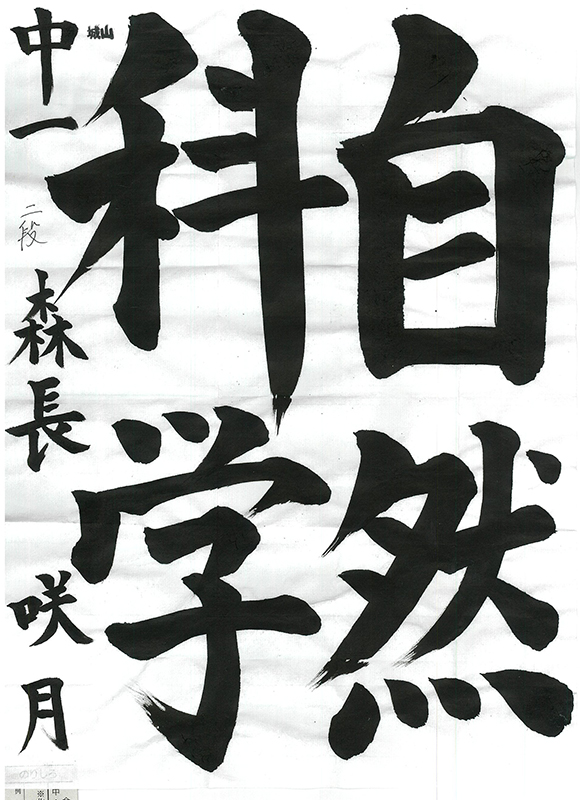 自然
科学
城山
中一 二段 森長 咲月
のりしろ